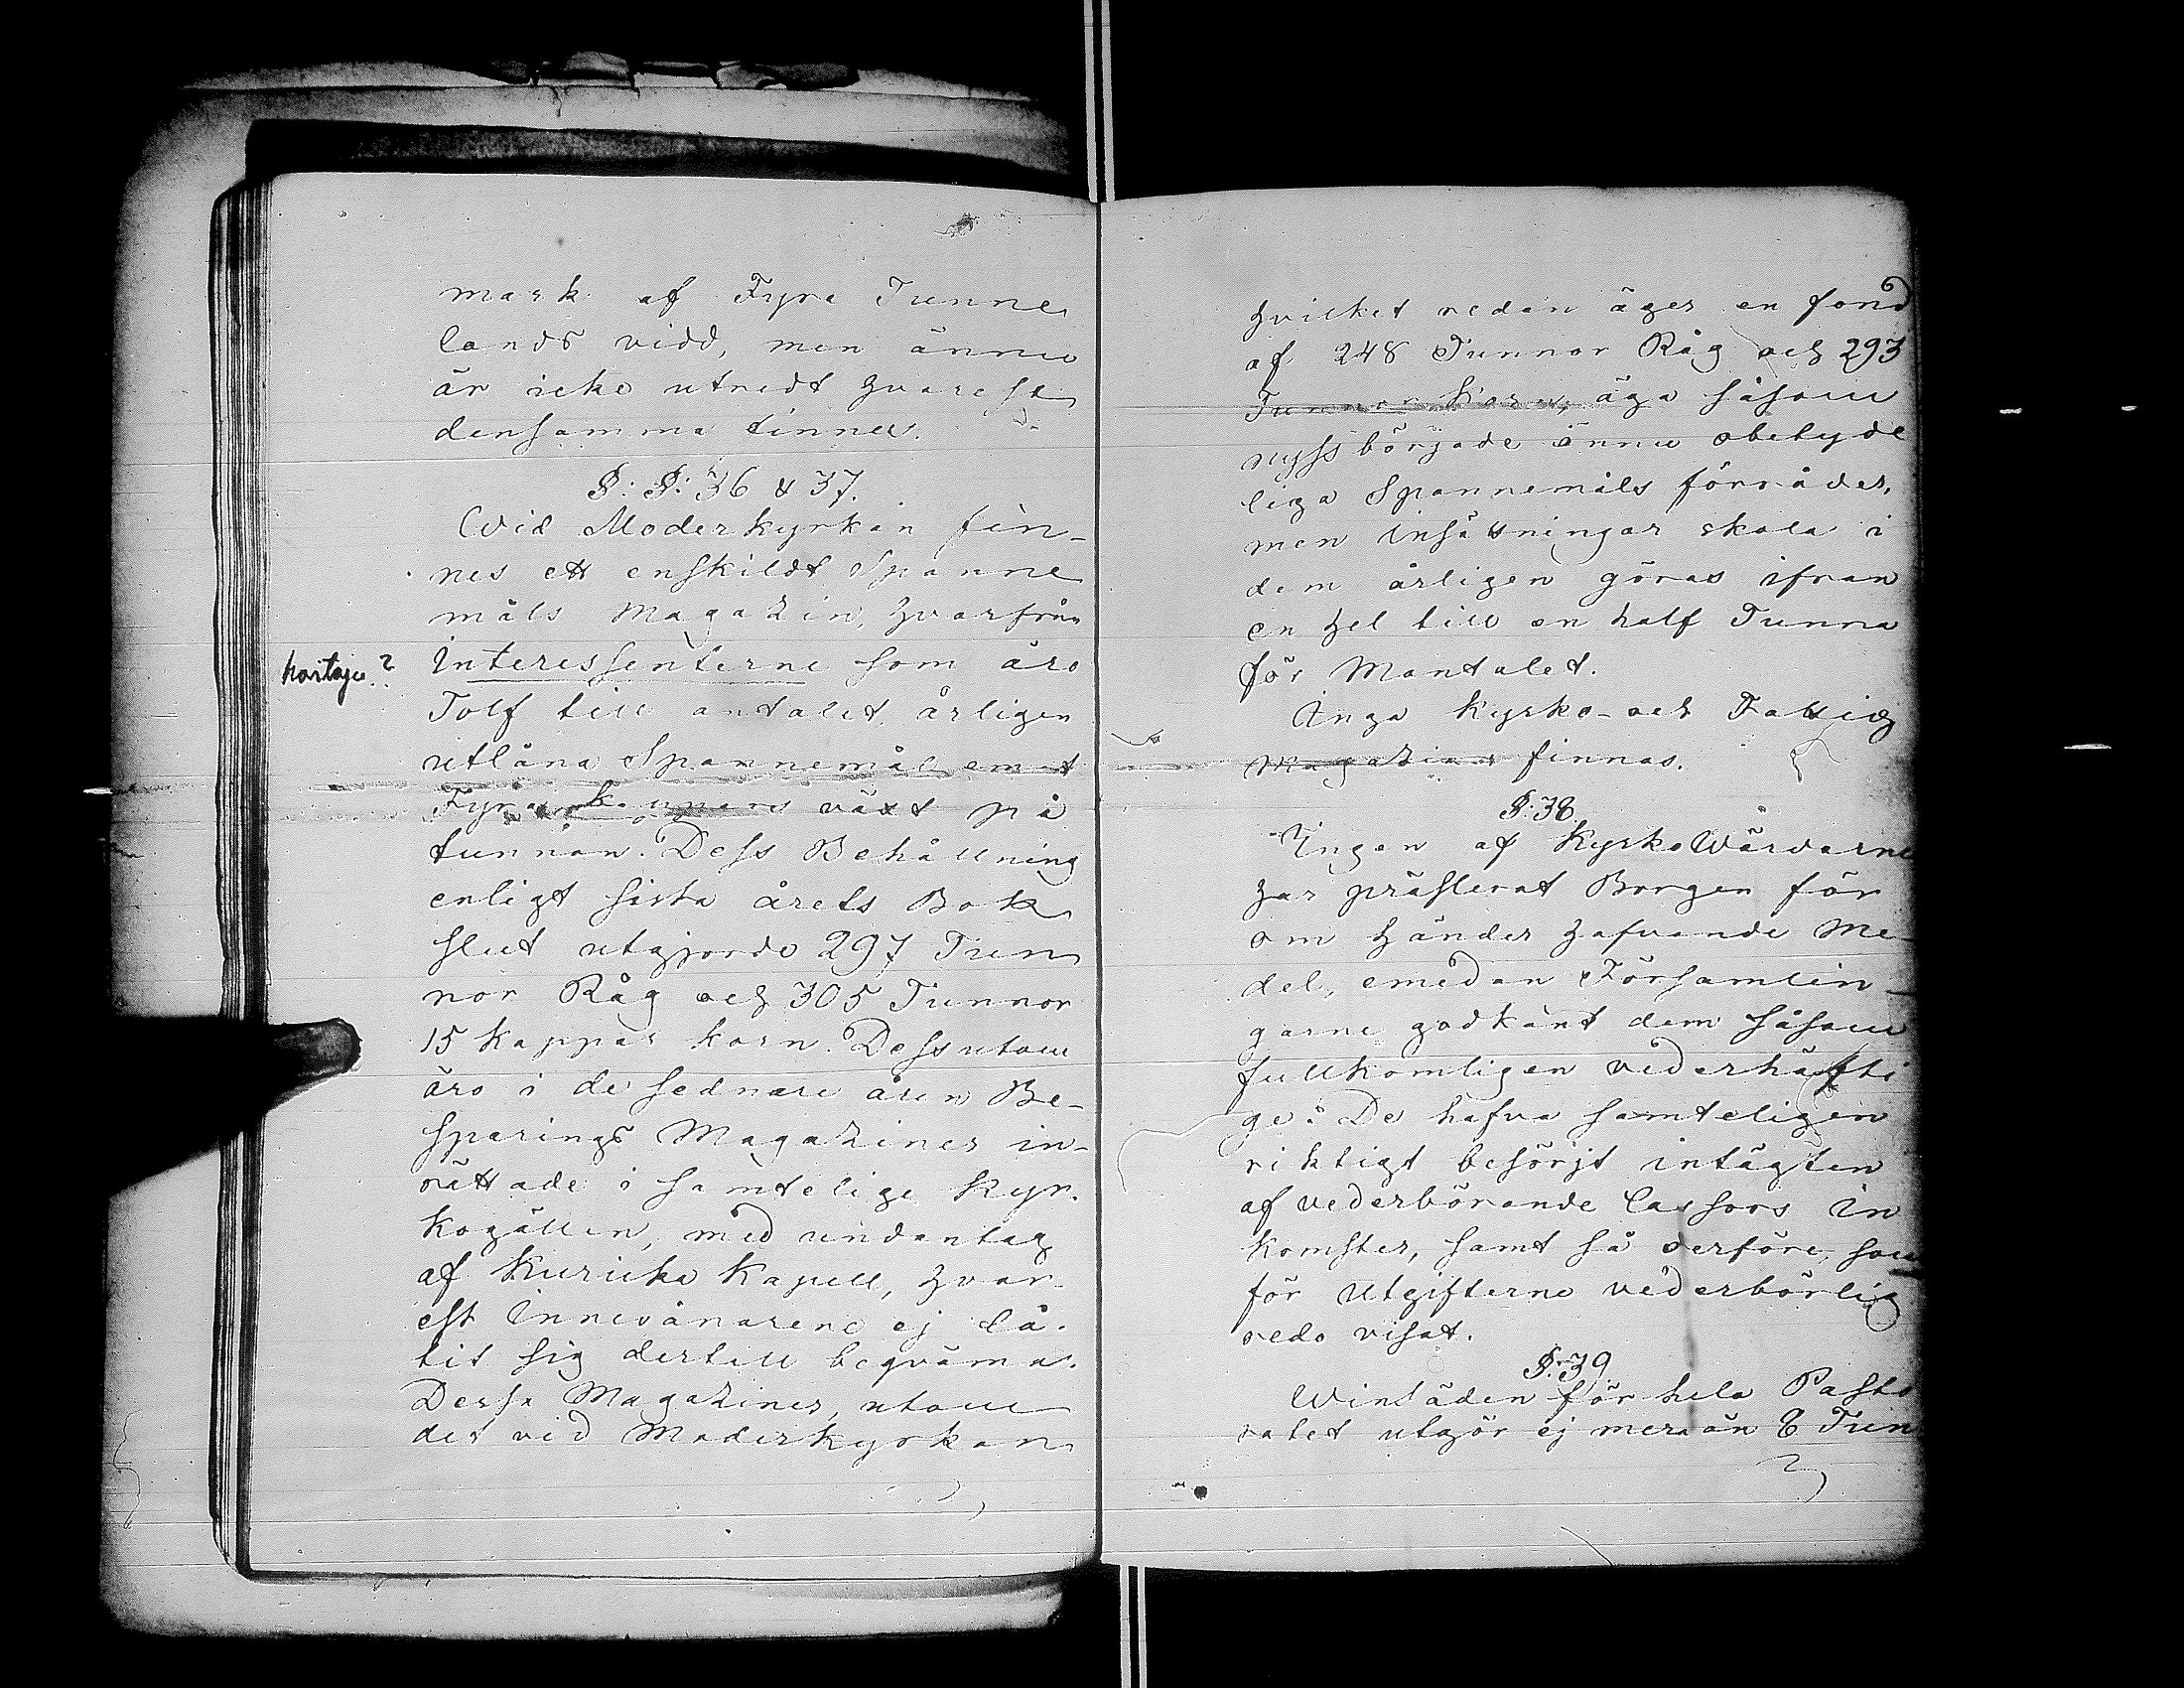 mark af Fyra Tunne
lands vidd, men ännu
är icke utredt hvarest
densamma finnes.
§: §: 36 & 37.
Wid Moderkyrkan fin-
nes ett enskildt Spanne
måls Magazin, hvarfrån
Interessenterne som äro
Tolf till antalet, årligen
utlåna Spannemål emot
Fyra kannors växt på
tunnan. Dess Behållning
enligt sista årets Bok
slut utgjorde 297 Tun
nor Råg och 305 Tunnor
15 kappar korn. Dessutom
äro i de sednare åren Be-
sparings Magaziner in-
rättade i samtelige kyr-
kogällen, med undantag
af Kuricka Kapell, hvar-
est Innevånarene ej lå-
tit sig dertill beqväma.
Dessa Magaziner, utom
det vid Moderkyrkan
hvilket redan äger en fond
af 248 Tunnor Råg och 293
Tunnor korn, äga såsom
nyss började ännu obetyde
liga Spannemåls förråder,
men insättningar skola i
dem årligen göras ifrån
en hel till en half Tunna
för Mantalet.
Inga kyrko- och Fattig
magaziner finnas.
§: 38.
Ingen af KyrkoWärdarne
har præsterat Borgen för
om händer hafvande Me-
del, emedan Församlin-
garne godkänt dem såsom
fullkomligen vederhäfti
ge. De hafva samteligen
riktigt besörjt intägten
af vederbörande Cassors In
komster, samt så derföre, som
för Utgifterne vederbörlig
redo visat.
§: 39
Winsäden för hela Pasto
ratet utgör ej mera än 8 Tun